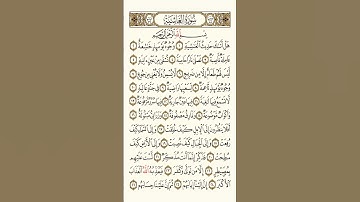 سُورَةُ الغَاشِيَةِ
بِسْمِ اللَّهِ الرَّحْمَٰنِ الرَّحِيمِ
هَلْ أَتَىٰكَ حَدِيثُ الْغَٰشِيَةِ ١ وُجُوهٌ يَوْمَئِذٍ خَٰشِعَةٌ ٢
عَامِلَةٌ نَّاصِبَةٌ ٣ تَصْلَىٰ نَارًا حَامِيَةً ٤ تُسْقَىٰ مِنْ عَيْنٍ ءَانِيَةٍ ٥
لَّيْسَ لَهُمْ طَعَامٌ إِلَّا مِن ضَرِيعٍ ٦ لَّا يُسْمِنُ وَلَا يُغْنِى مِن جُوعٍ ٧
وُجُوهٌ يَوْمَئِذٍ نَّاعِمَةٌ ٨ لِّسَعْيِهَا رَاضِيَةٌ ٩ فِى جَنَّةٍ عَالِيَةٍ ١٠
لَّا تَسْمَعُ فِيهَا لَٰغِيَةً ١١ فِيهَا عَيْنٌ جَارِيَةٌ ١٢ فِيهَا سُرُرٌ مَّرْفُوعَةٌ ١٣
وَأَكْوَابٌ مَّوْضُوعَةٌ ١٤ وَنَمَارِقُ مَصْفُوفَةٌ ١٥ وَزَرَابِىُّ مَبْثُوثَةٌ ١٦
أَفَلَا يَنظُرُونَ إِلَى الْإِبِلِ كَيْفَ خُلِقَتْ ١٧ وَإِلَى السَّمَاءِ كَيْفَ
رُفِعَتْ ١٨ وَإِلَى الْجِبَالِ كَيْفَ نُصِبَتْ ١٩ وَإِلَى الْأَرْضِ كَيْفَ
سُطِحَتْ ٢٠ فَذَكِّرْ إِنَّمَا أَنتَ مُذَكِّرٌ ٢١ لَّسْتَ عَلَيْهِم
بِمُصَيْطِرٍ ٢٢ إِلَّا مَن تَوَلَّىٰ وَكَفَرَ ٢٣ فَيُعَذِّبُهُ اللَّهُ الْعَذَابَ
الْأَكْبَرَ ٢٤ إِنَّ إِلَيْنَا إِيَابَهُمْ ٢٥ ثُمَّ إِنَّ عَلَيْنَا حِسَابَهُم ٢٦